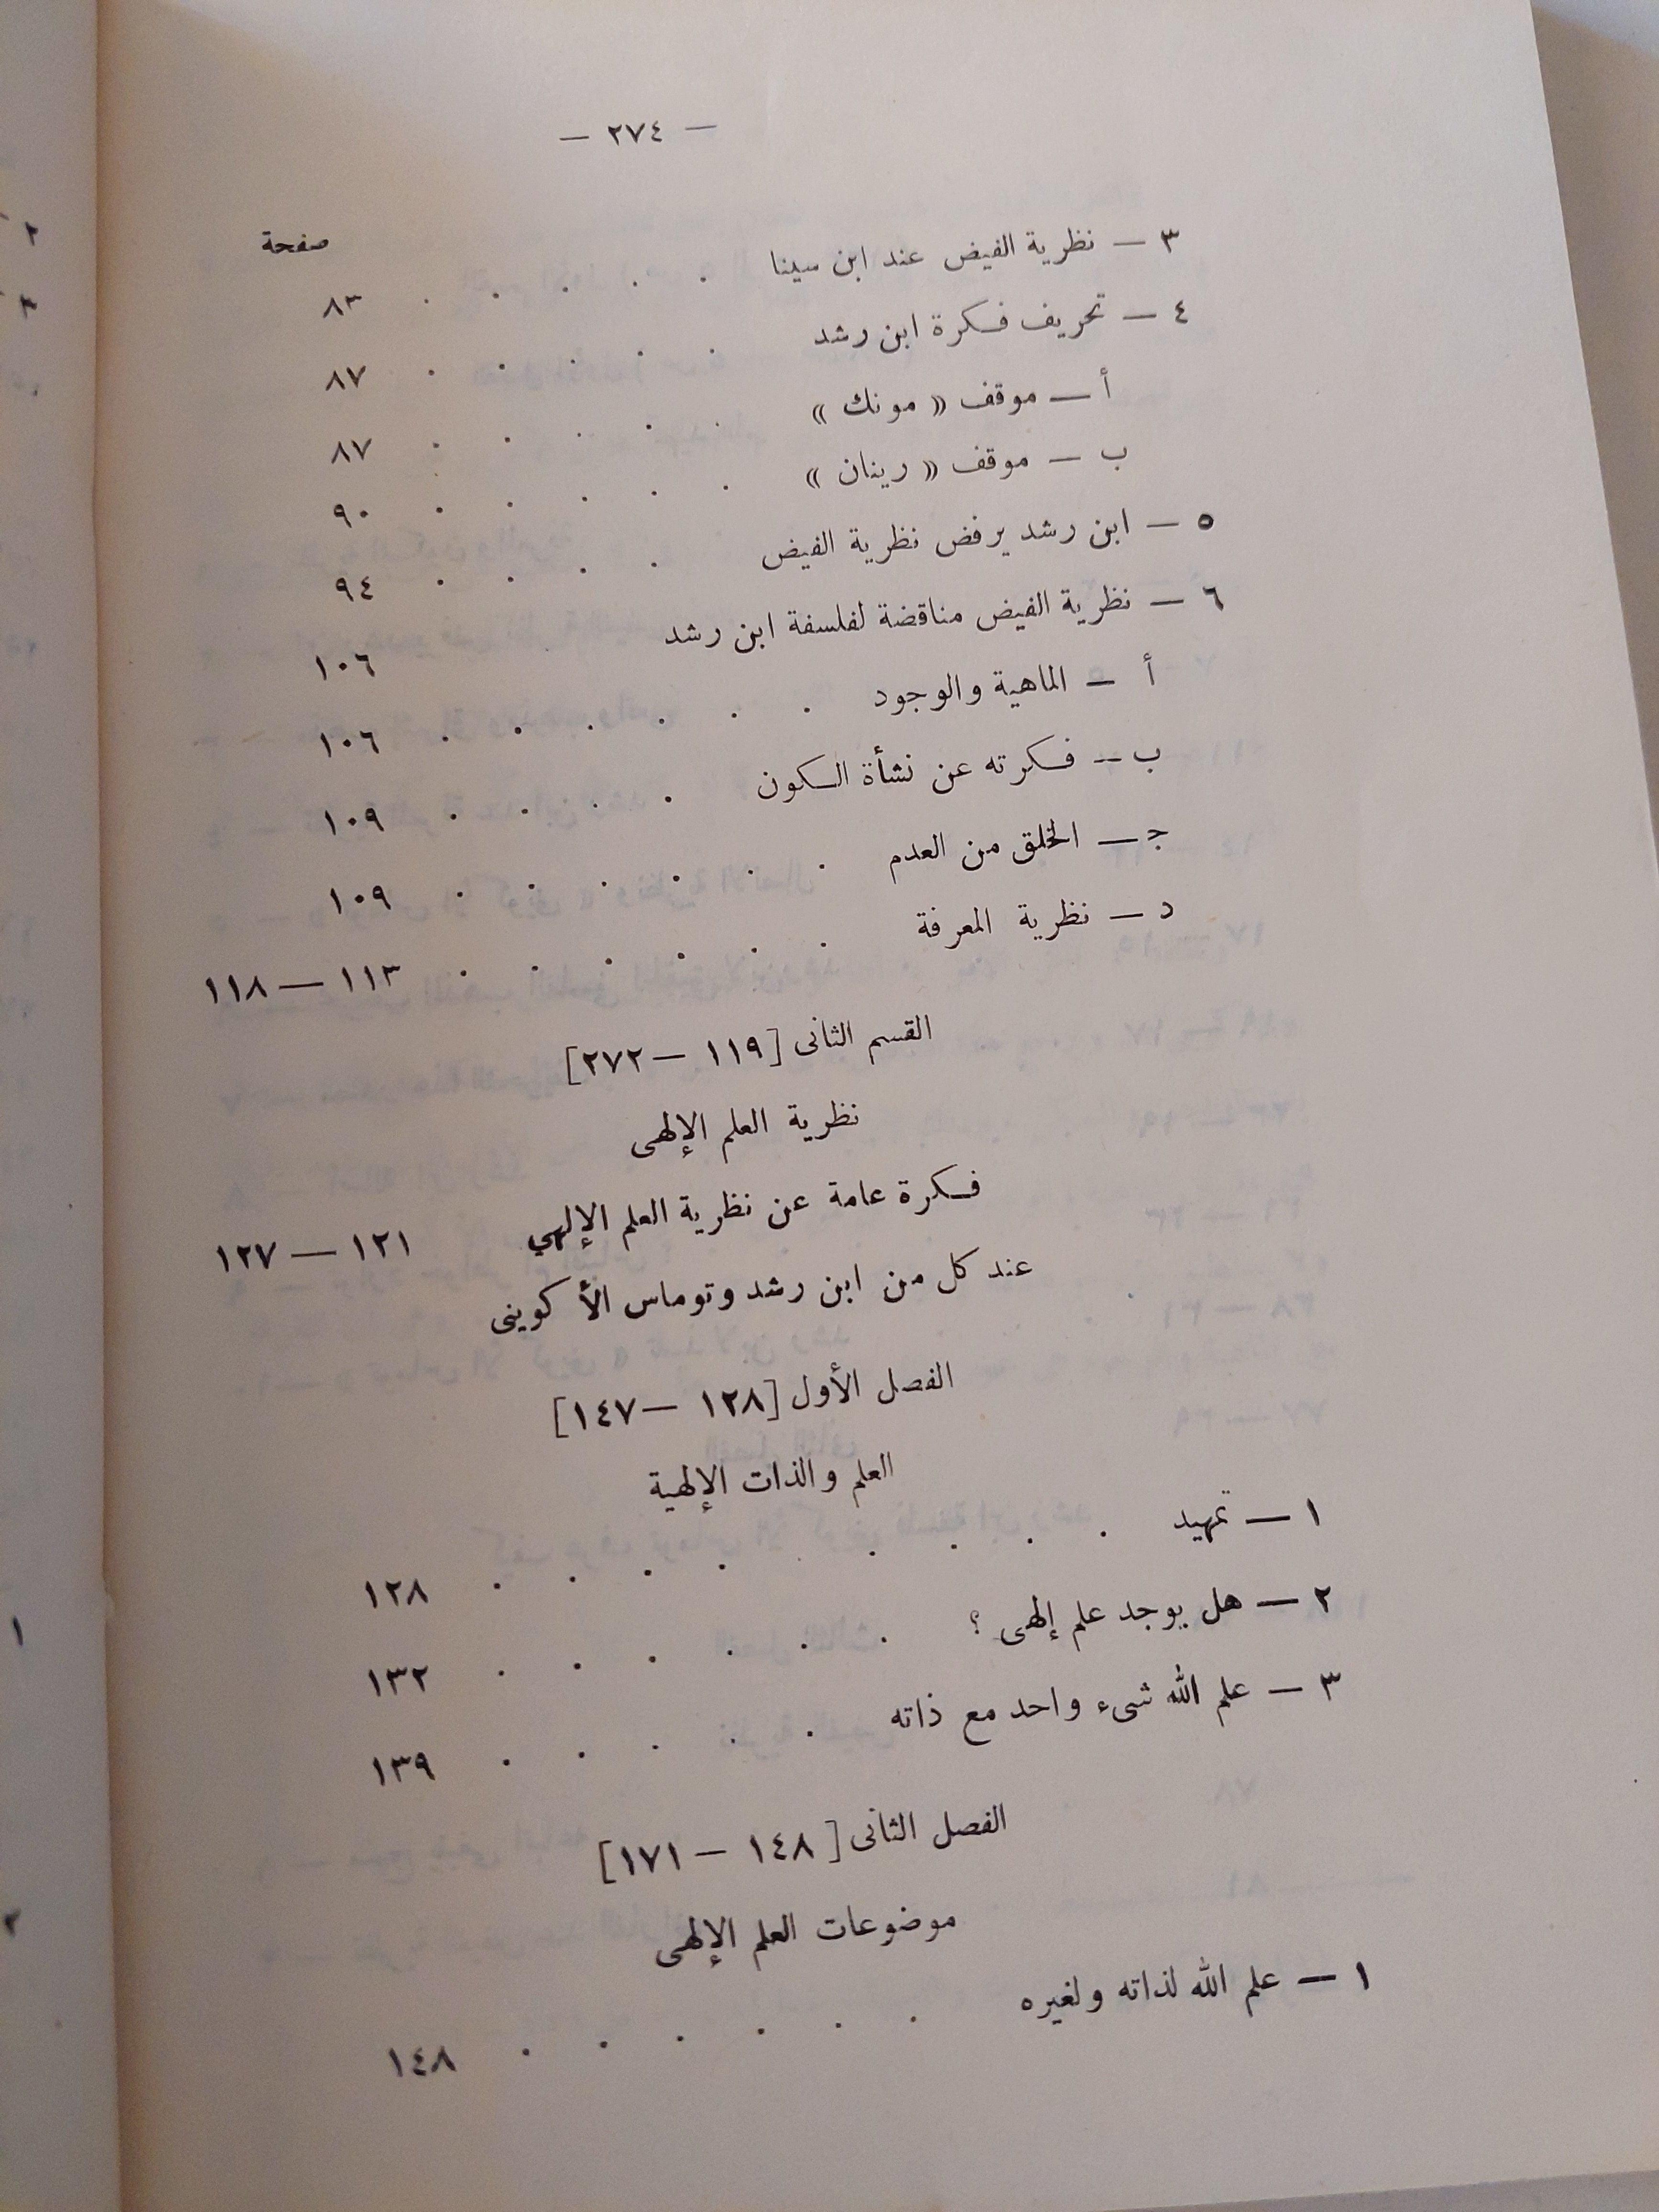 — ٢٧٤ —
صفحة
٣ — نظرية الفيض عند ابن سينا . . . . . ٨٣
٤ — تحريف فكرة ابن رشد . . . . . ٨٧
أ — موقف « مونك » . . . . . ٨٧
ب — موقف « رينان » . . . . . ٩٠
٥ — ابن رشد يرفض نظرية الفيض . . . . ٩٤
٦ — نظرية الفيض مناقضة لفلسفة ابن رشد . ١٠٦
أ — الماهية والوجود . . . . . . ١٠٦
ب — فكرته عن نشأة الكون . . . . ١٠٩
ج — الخلق من العدم . . . . . . ١٠٩
د — نظرية المعرفة . . . . . . ١١٣ — ١١٨
القسم الثانى [١١٩ — ٢٧٢]
نظرية العلم الإلهى
فكرة عامة عن نظرية العلم الإلهي ١٢١ — ١٢٧
عند كل من ابن رشد وتوماس الأكوينى
الفصل الأول [١٢٨ — ١٤٧]
العلم والذات الإلهية
١ — تمهيد . . . . . . . . ١٢٨
٢ — هل يوجد علم إلهى ؟ . . . . . . ١٣٢
٣ — علم الله شىء واحد مع ذاته . . . . . ١٣٩
الفصل الثانى [١٤٨ — ١٧١]
موضوعات العلم الإلهى
١ — علم الله لذاته ولغيره . . . . . . ١٤٨